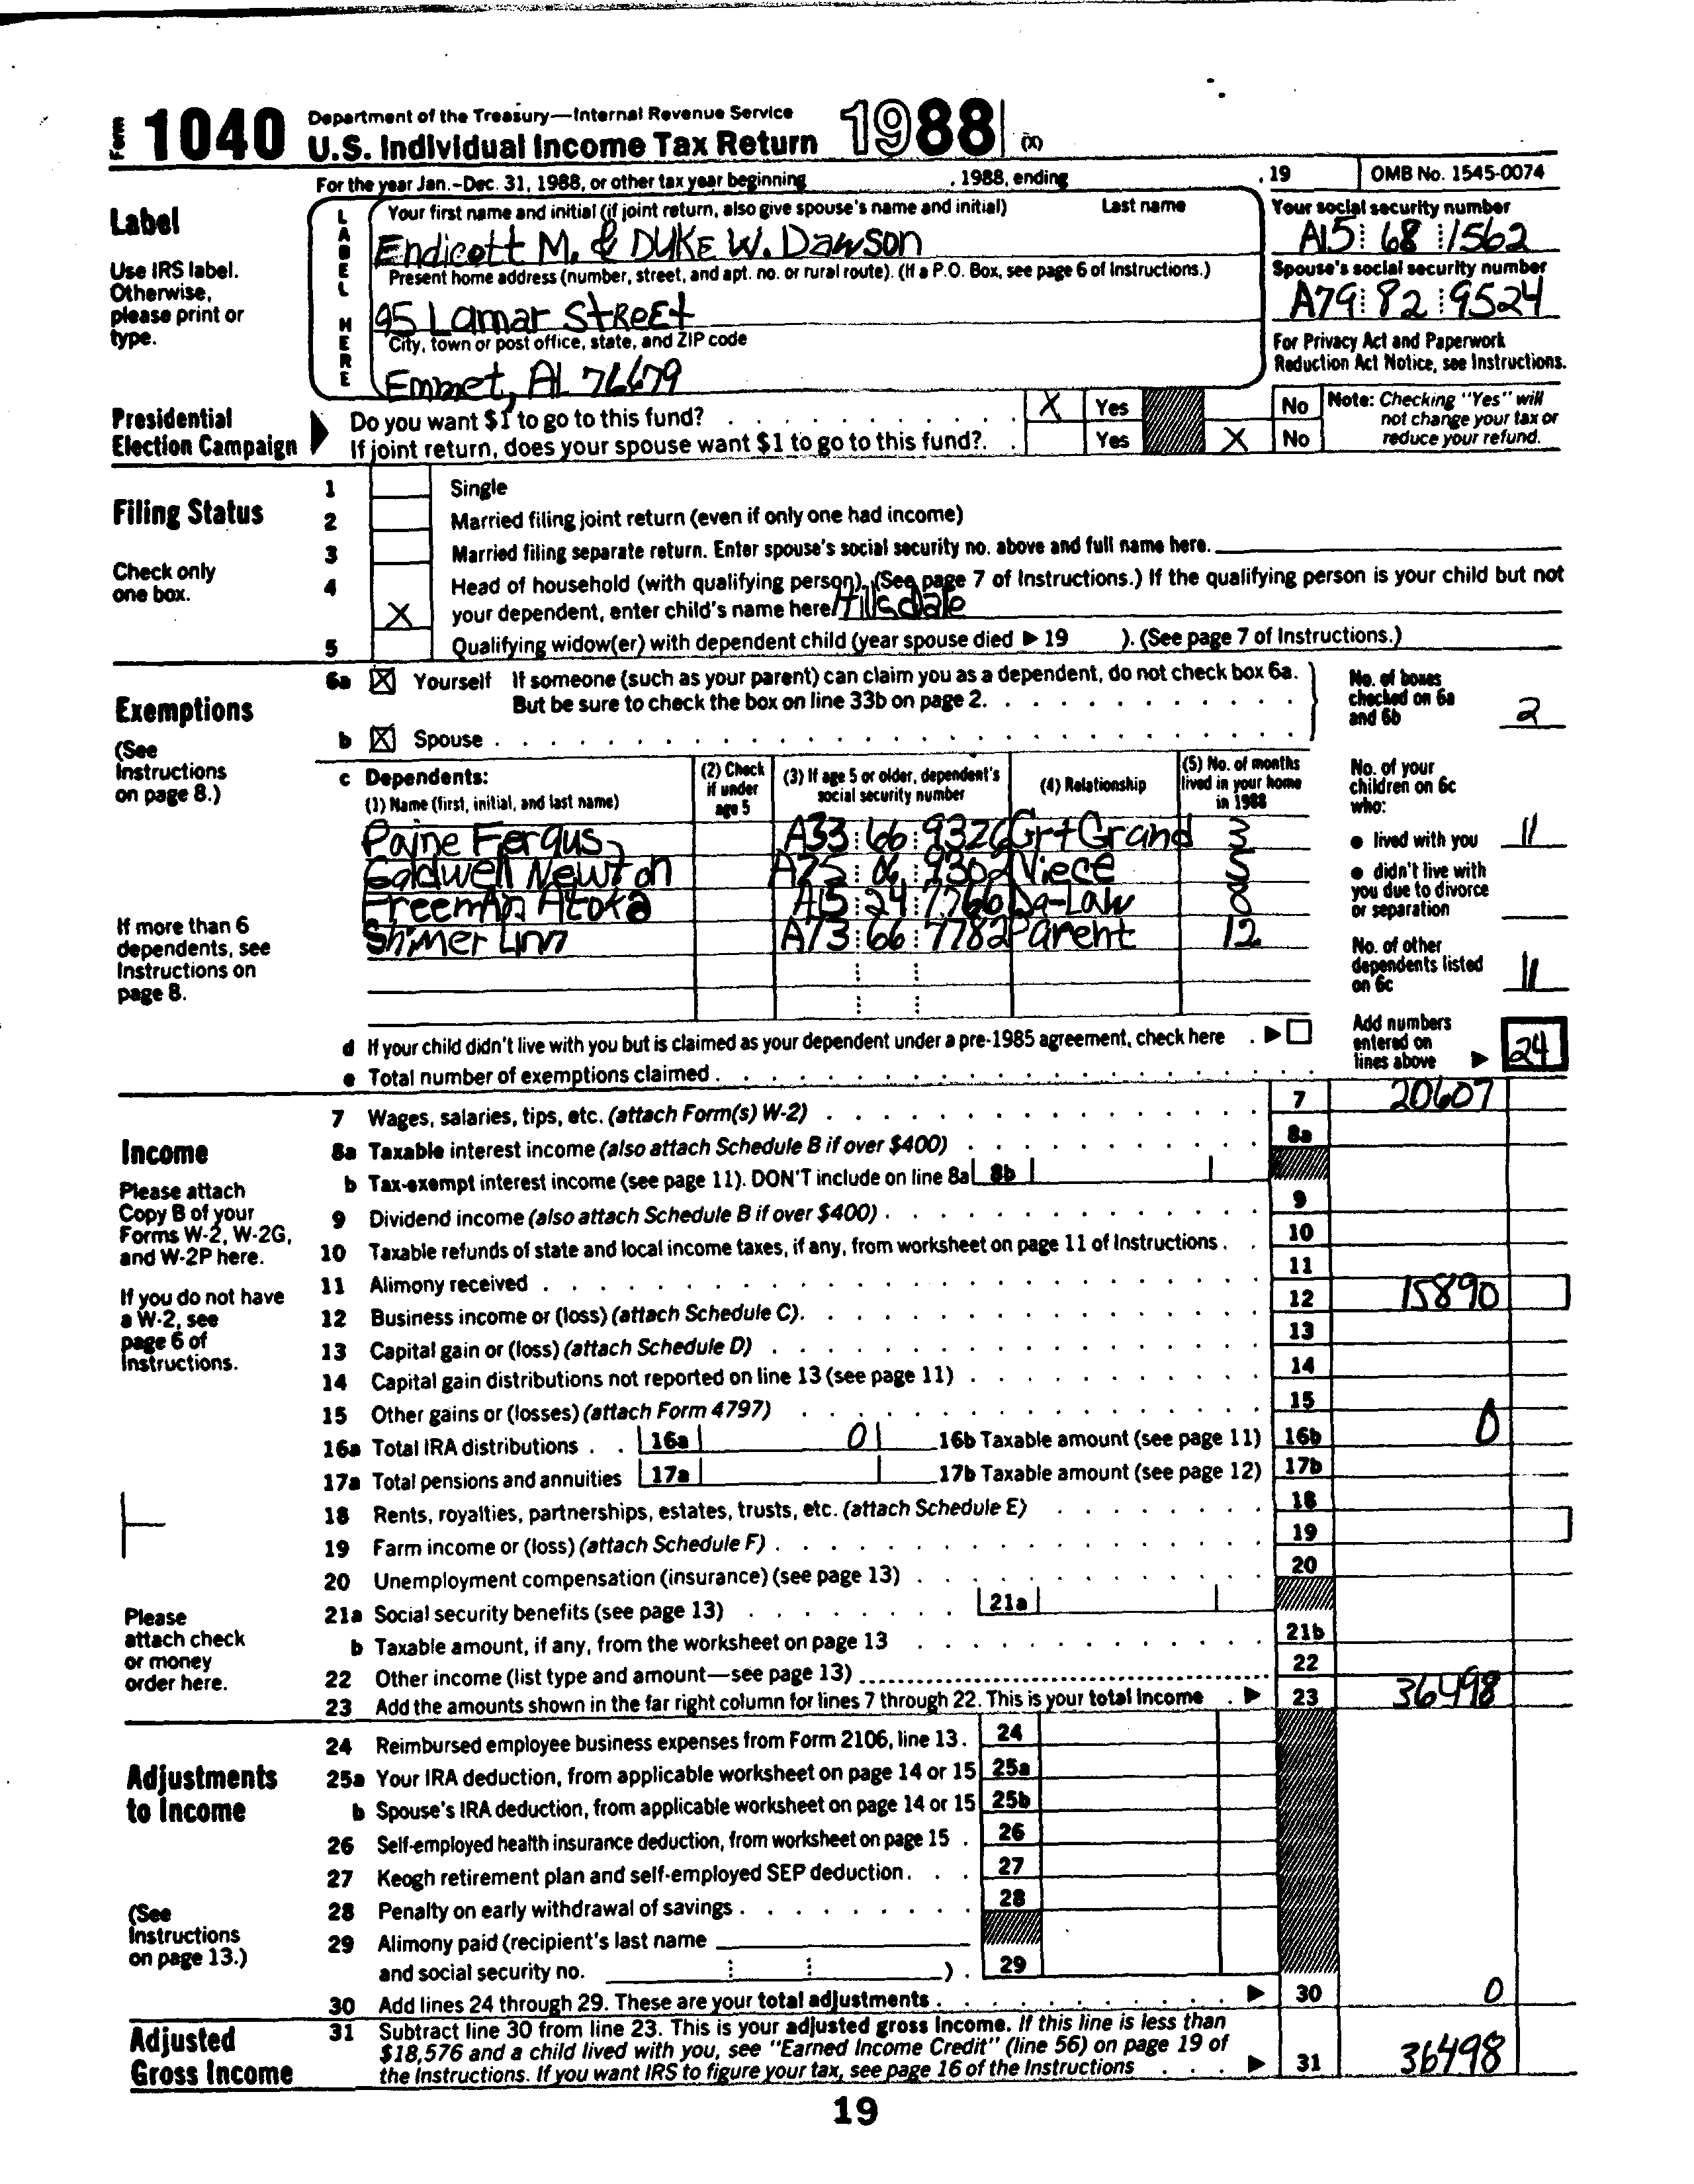 Form 1040 Department of the Treasury—Internal Revenue Service
U.S. Individual Income Tax Return 1988 (X)
For the year Jan.-Dec. 31, 1988, or other tax year beginning , 1988, ending , 19 OMB No. 1545-0074
Label
Use IRS label. Otherwise, please print or type.
LABEL HERE
Your first name and initial (if joint return, also give spouse's name and initial) Last name
Endicott M. & DUKE W. Dawson
Your social security number
A15 68 1562
Present home address (number, street, and apt. no. or rural route). (If a P.O. Box, see page 6 of Instructions.)
95 Lamar StReet
Spouse's social security number
A79 82 9524
City, town or post office, state, and ZIP code
Emmet, Al 76679
For Privacy Act and Paperwork Reduction Act Notice, see Instructions.
Presidential Election Campaign
Do you want $1 to go to this fund? X Yes No
If joint return, does your spouse want $1 to go to this fund? Yes X No
Note: Checking "Yes" will not change your tax or reduce your refund.
Filing Status
Check only one box.
1 Single
2 Married filing joint return (even if only one had income)
3 Married filing separate return. Enter spouse's social security no. above and full name here.
4 Head of household (with qualifying person). (See page 7 of Instructions.) If the qualifying person is your child but not
X your dependent, enter child's name here Hillsdale
5 Qualifying widow(er) with dependent child (year spouse died ▶ 19 ). (See page 7 of Instructions.)
Exemptions
(See Instructions on page 8.)
6a X Yourself If someone (such as your parent) can claim you as a dependent, do not check box 6a.
But be sure to check the box on line 33b on page 2.
b X Spouse
No. of boxes checked on 6a and 6b 2
c Dependents:
(1) Name (first, initial, and last name)
(2) Check if under age 5
(3) If age 5 or older, dependent's social security number
(4) Relationship
(5) No. of months lived in your home in 1988
Paine Fergus A33 66 9326 Grt Grand 3
Caldwell Newton A75 06 9302 Niece 5
Freeman Atoka A15 24 7766 Da-Law
Shimer Linn A73 66 7782 Parent 12
If more than 6 dependents, see Instructions on page 8.
No. of your children on 6c who:
● lived with you 11
● didn't live with you due to divorce or separation
No. of other dependents listed on 6c 11
d If your child didn't live with you but is claimed as your dependent under a pre-1985 agreement, check here ▶
e Total number of exemptions claimed
Add numbers entered on lines above ▶ 24
Income
Please attach Copy B of your Forms W-2, W-2G, and W-2P here.
If you do not have a W-2, see page 6 of Instructions.
Please attach check or money order here.
7 Wages, salaries, tips, etc. (attach Form(s) W-2) 7 20607
8a Taxable interest income (also attach Schedule B if over $400) 8a
b Tax-exempt interest income (see page 11). DON'T include on line 8a 8b
9 Dividend income (also attach Schedule B if over $400) 9
10 Taxable refunds of state and local income taxes, if any, from worksheet on page 11 of Instructions 10
11 Alimony received 11
12 Business income or (loss) (attach Schedule C) 12 15890
13 Capital gain or (loss) (attach Schedule D) 13
14 Capital gain distributions not reported on line 13 (see page 11) 14
15 Other gains or (losses) (attach Form 4797) 15
16a Total IRA distributions 16a 0 16b Taxable amount (see page 11) 16b 0
17a Total pensions and annuities 17a 17b Taxable amount (see page 12) 17b
18 Rents, royalties, partnerships, estates, trusts, etc. (attach Schedule E) 18
19 Farm income or (loss) (attach Schedule F) 19
20 Unemployment compensation (insurance) (see page 13) 20
21a Social security benefits (see page 13) 21a
b Taxable amount, if any, from the worksheet on page 13 21b
22 Other income (list type and amount—see page 13) 22
23 Add the amounts shown in the far right column for lines 7 through 22. This is your total income ▶ 23 36498
Adjustments to Income
(See Instructions on page 13.)
24 Reimbursed employee business expenses from Form 2106, line 13. 24
25a Your IRA deduction, from applicable worksheet on page 14 or 15 25a
b Spouse's IRA deduction, from applicable worksheet on page 14 or 15 25b
26 Self-employed health insurance deduction, from worksheet on page 15 26
27 Keogh retirement plan and self-employed SEP deduction 27
28 Penalty on early withdrawal of savings 28
29 Alimony paid (recipient's last name
and social security no. ) 29
30 Add lines 24 through 29. These are your total adjustments ▶ 30 0
Adjusted Gross Income
31 Subtract line 30 from line 23. This is your adjusted gross income. If this line is less than
$18,576 and a child lived with you, see "Earned Income Credit" (line 56) on page 19 of
the Instructions. If you want IRS to figure your tax, see page 16 of the Instructions ▶ 31 36498
19